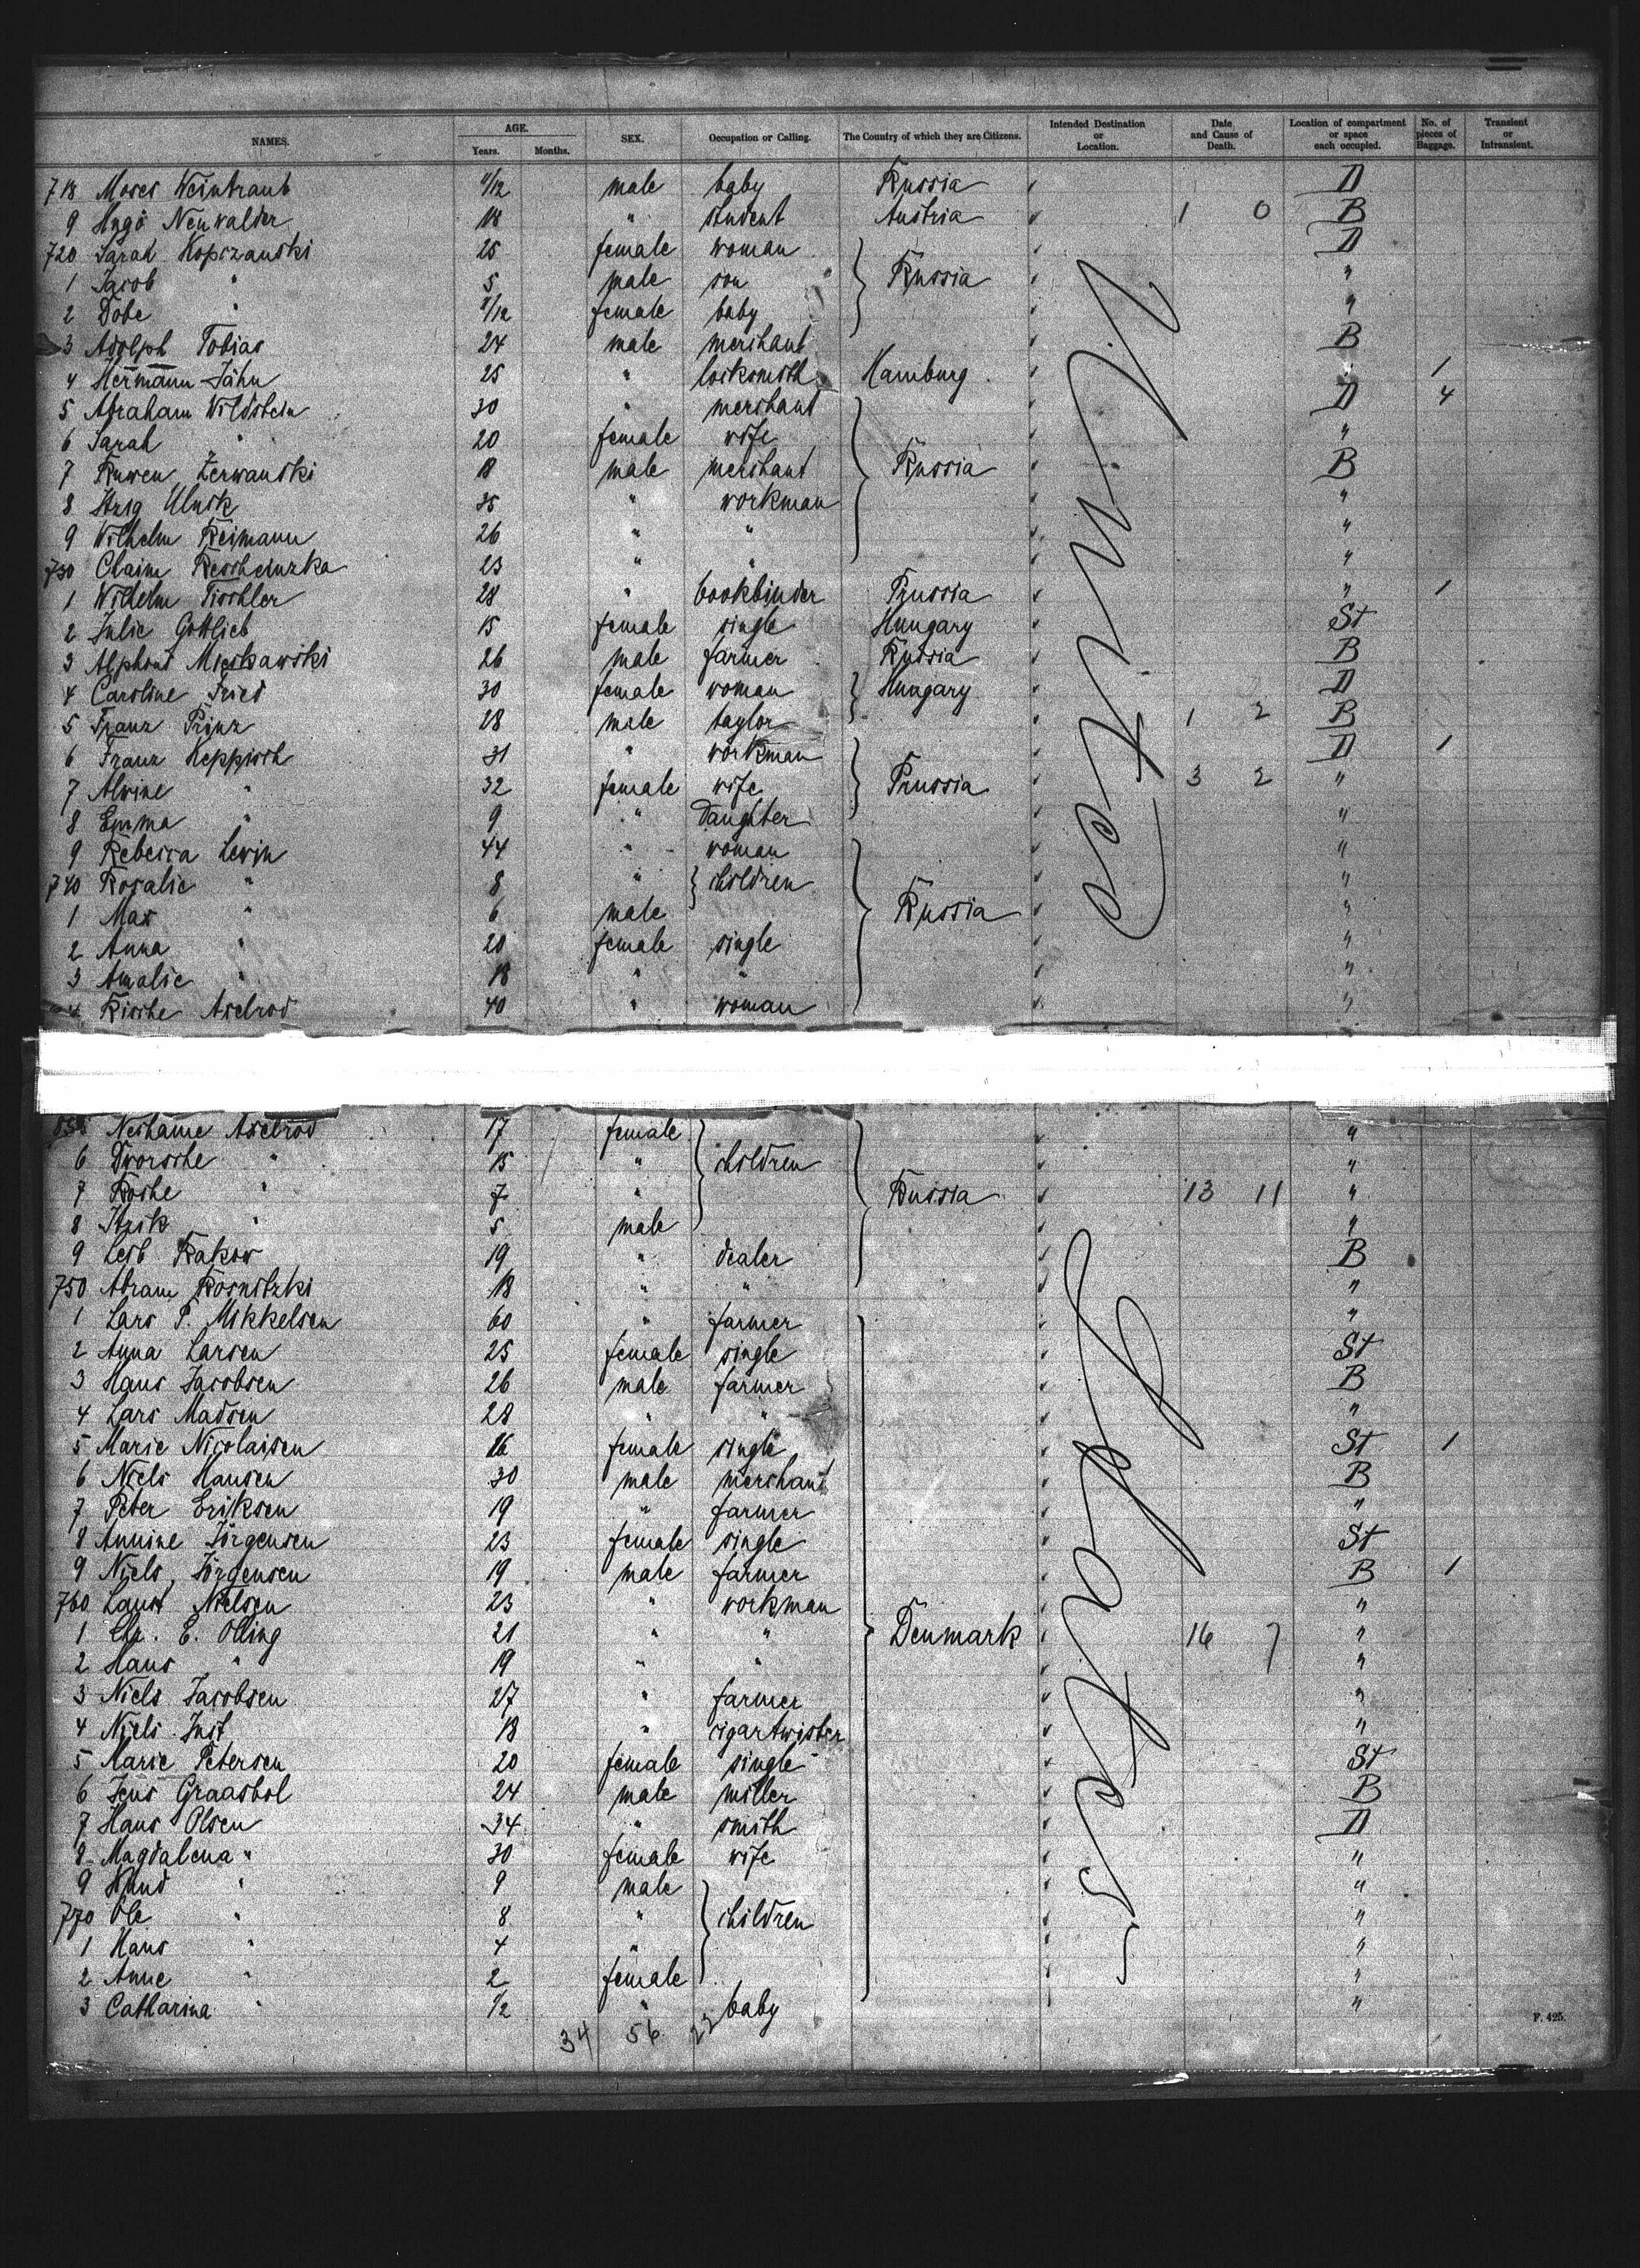 NAMES. AGE. Years. Months. SEX. Occupation or Calling. The Country of which they are Citizens. Intended Destination or Location. Date and Cause of Death. Location of compartment or space each occupied. No. of pieces of Baggage. Transient or Intransient.
718 Moses Weintraub 11/12 male baby Russia D
9 Hugo Neuwalder 18 " student Austria 1 0 B
720 Sarah Kopczanski 25 female woman D
1 Jacob " 5 male son Russia "
2 Dobe " 11/12 female baby "
3 Adolph Tobias 24 male merchant B
4 Hermann Jähn 25 " locksmith Hamburg " 1
5 Abraham Wildstein 30 " merchant D 4
6 Sarah " 20 female wife "
7 Ruwen Zerwanski 18 male merchant Russia B
8 Itzig Ulnik 35 " workman "
9 Wilhelm Reimann 26 " " "
730 Chaim 23 " " "
1 Wilhelm Tischler 28 " bookbinder Prussia " 1
2 Julie Gottlieb 15 female single Hungary St
3 Alphons Mieskawski 26 male farmer Russia B
4 Caroline Fried 30 female woman Hungary D
5 Franz Prinz 28 male taylor 1 2 B
6 Franz Keppisch 31 " workman D 1
7 Alvine " 32 female wife Prussia 3 2 "
8 Emma " 9 " daughter "
9 Rebecca Levin 44 " woman "
740 Rosalie " 8 " children "
1 Max " 6 male Russia "
2 Anna " 20 female single "
3 Amalie " 18 " " "
4 Rische Axelrod 40 " woman "
Nechame Axelrod 17 female "
6 Dworsche " 15 " children "
7 Roche " 7 " Russia 13 11 "
8 Itzik " 5 male "
9 Leib Rakow 19 " dealer B
750 Abram Rosnitzki 18 " " "
1 Lars P. Mikkelsen 60 " farmer "
2 Anna Larsen 25 female single St
3 Hans Jacobsen 26 male farmer B
4 Lars Madsen 28 " " "
5 Marie Nicolaisen 16 female single St 1
6 Niels Hansen 30 male merchant B
7 Peter Eriksen 19 " farmer "
8 Annine Jörgensen 23 female single St
9 Niels Jörgensen 19 male farmer B 1
760 Laust Nielsen 23 " workman "
1 Chr. E. Olling 21 " " Denmark 16 7 "
2 Hans " 19 " " "
3 Niels Jacobsen 27 " farmer "
4 Niels Just 18 " cigartwister "
5 Marie Petersen 20 female single St
6 Jens Graasbol 24 male miller B
7 Hans Olsen 34 " smith D
8 Magdalena " 30 female wife "
9 Knud " 9 male "
770 Ole " 8 " children "
1 Hans " 4 " "
2 Anne " 2 female "
3 Catharina " 1/2 " baby "
34 56 22
F. 425.